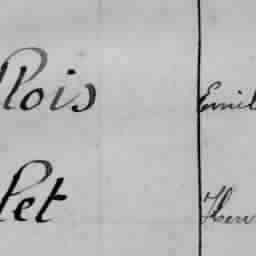 lois Emil
let Hen